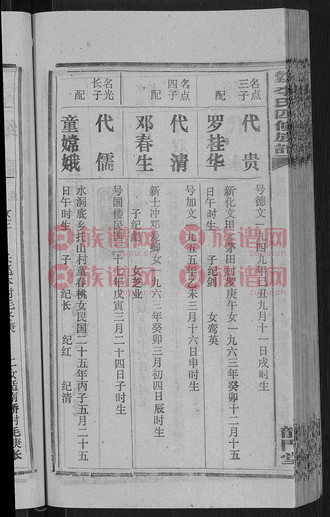 李氏四修族譜
龍門堂
名点
三子
代贵
号德文一九四九年己丑九月十一日戌时生
配
罗桂华
新化文田乡永田村罗庚午女一九六三年癸卯十二月十五
日午时生
子纪剑
女鸾英
名点
四子
代清
号加文一九五五年乙未三月十六日申时生
配
邓春生
新士冲邓龙卿女一九六三年癸卯三月初四日辰时生
子纪彪
女芝本
名光
长子
代儒
号国楼民国二十七年戊寅三月二十四日子时生
配
童嫦娥
水洞底乡托山村童春桃女民国二十五年丙子五月二十五
日午时生
子
纪长
纪红
纪清
族谱网